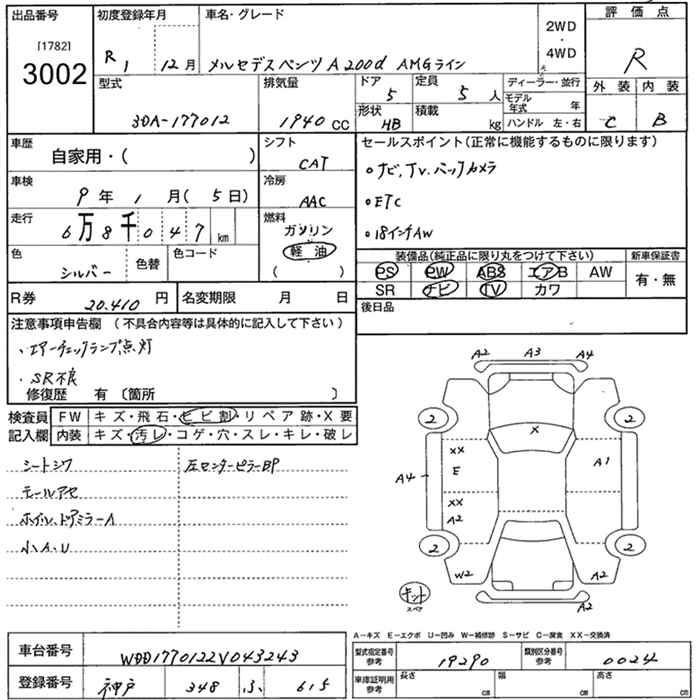 出品番号
[1782]
3002
初度登録年月
R 1 12月
車名・グレード
メルセデスベンツ A200d AMGライン
2WD
・
4WD
評価点
R
外装 内装
C B
型式
3DA-177012
排気量
1940 CC
ドア
5
定員
5 人
形状
HB
積載
kg
ディーラー・並行
モデル年式 年
ハンドル 左・右
車歴
自家用・( )
シフト
CAT
車検
9年 1月( 5日)
冷房
AAC
走行
6万8千047km
燃料
ガソリン
軽油
( )
色
シルバー
色替
色コード
R券 20.410円
名変期限 月 日
セールスポイント(正常に機能するものに限ります)
○ナビ,TV,バックカメラ
○ETC
○18インチAW
装備品(純正品に限り丸をつけて下さい)
新車保証書
PS PW ABS エアB AW
有・無
SR ナビ TV カワ
後日品
注意事項申告欄 (不具合内容等は具体的に記入して下さい)
・エアーチェックランプ点灯
・SR不良
修復歴 有〔箇所 〕
検査員
記入欄
FW キズ・飛石・ヒビ割・リペア跡・X要
内装 キズ・汚レ・コゲ・穴・スレ・キレ・破レ
シートシワ
左センターピラーBP
モールアセ
ホイル、ドアミラーA
小A、U
A2 A3 A4
2 2
X
XX
E
A1
A4
XX
A2
2 2
W2 A2
キット
スペア
A2
A-キズ E-エクボ U-凹み W-補修跡 S-サビ C-腐食 XX-交換済
車台番号
WDD1770122V043243
登録番号
神戸 348 ふ 615
型式指定番号
参考
19290
類別区分番号
参考
0024
車庫証明用
参考
長さ cm
幅 cm
高さ cm